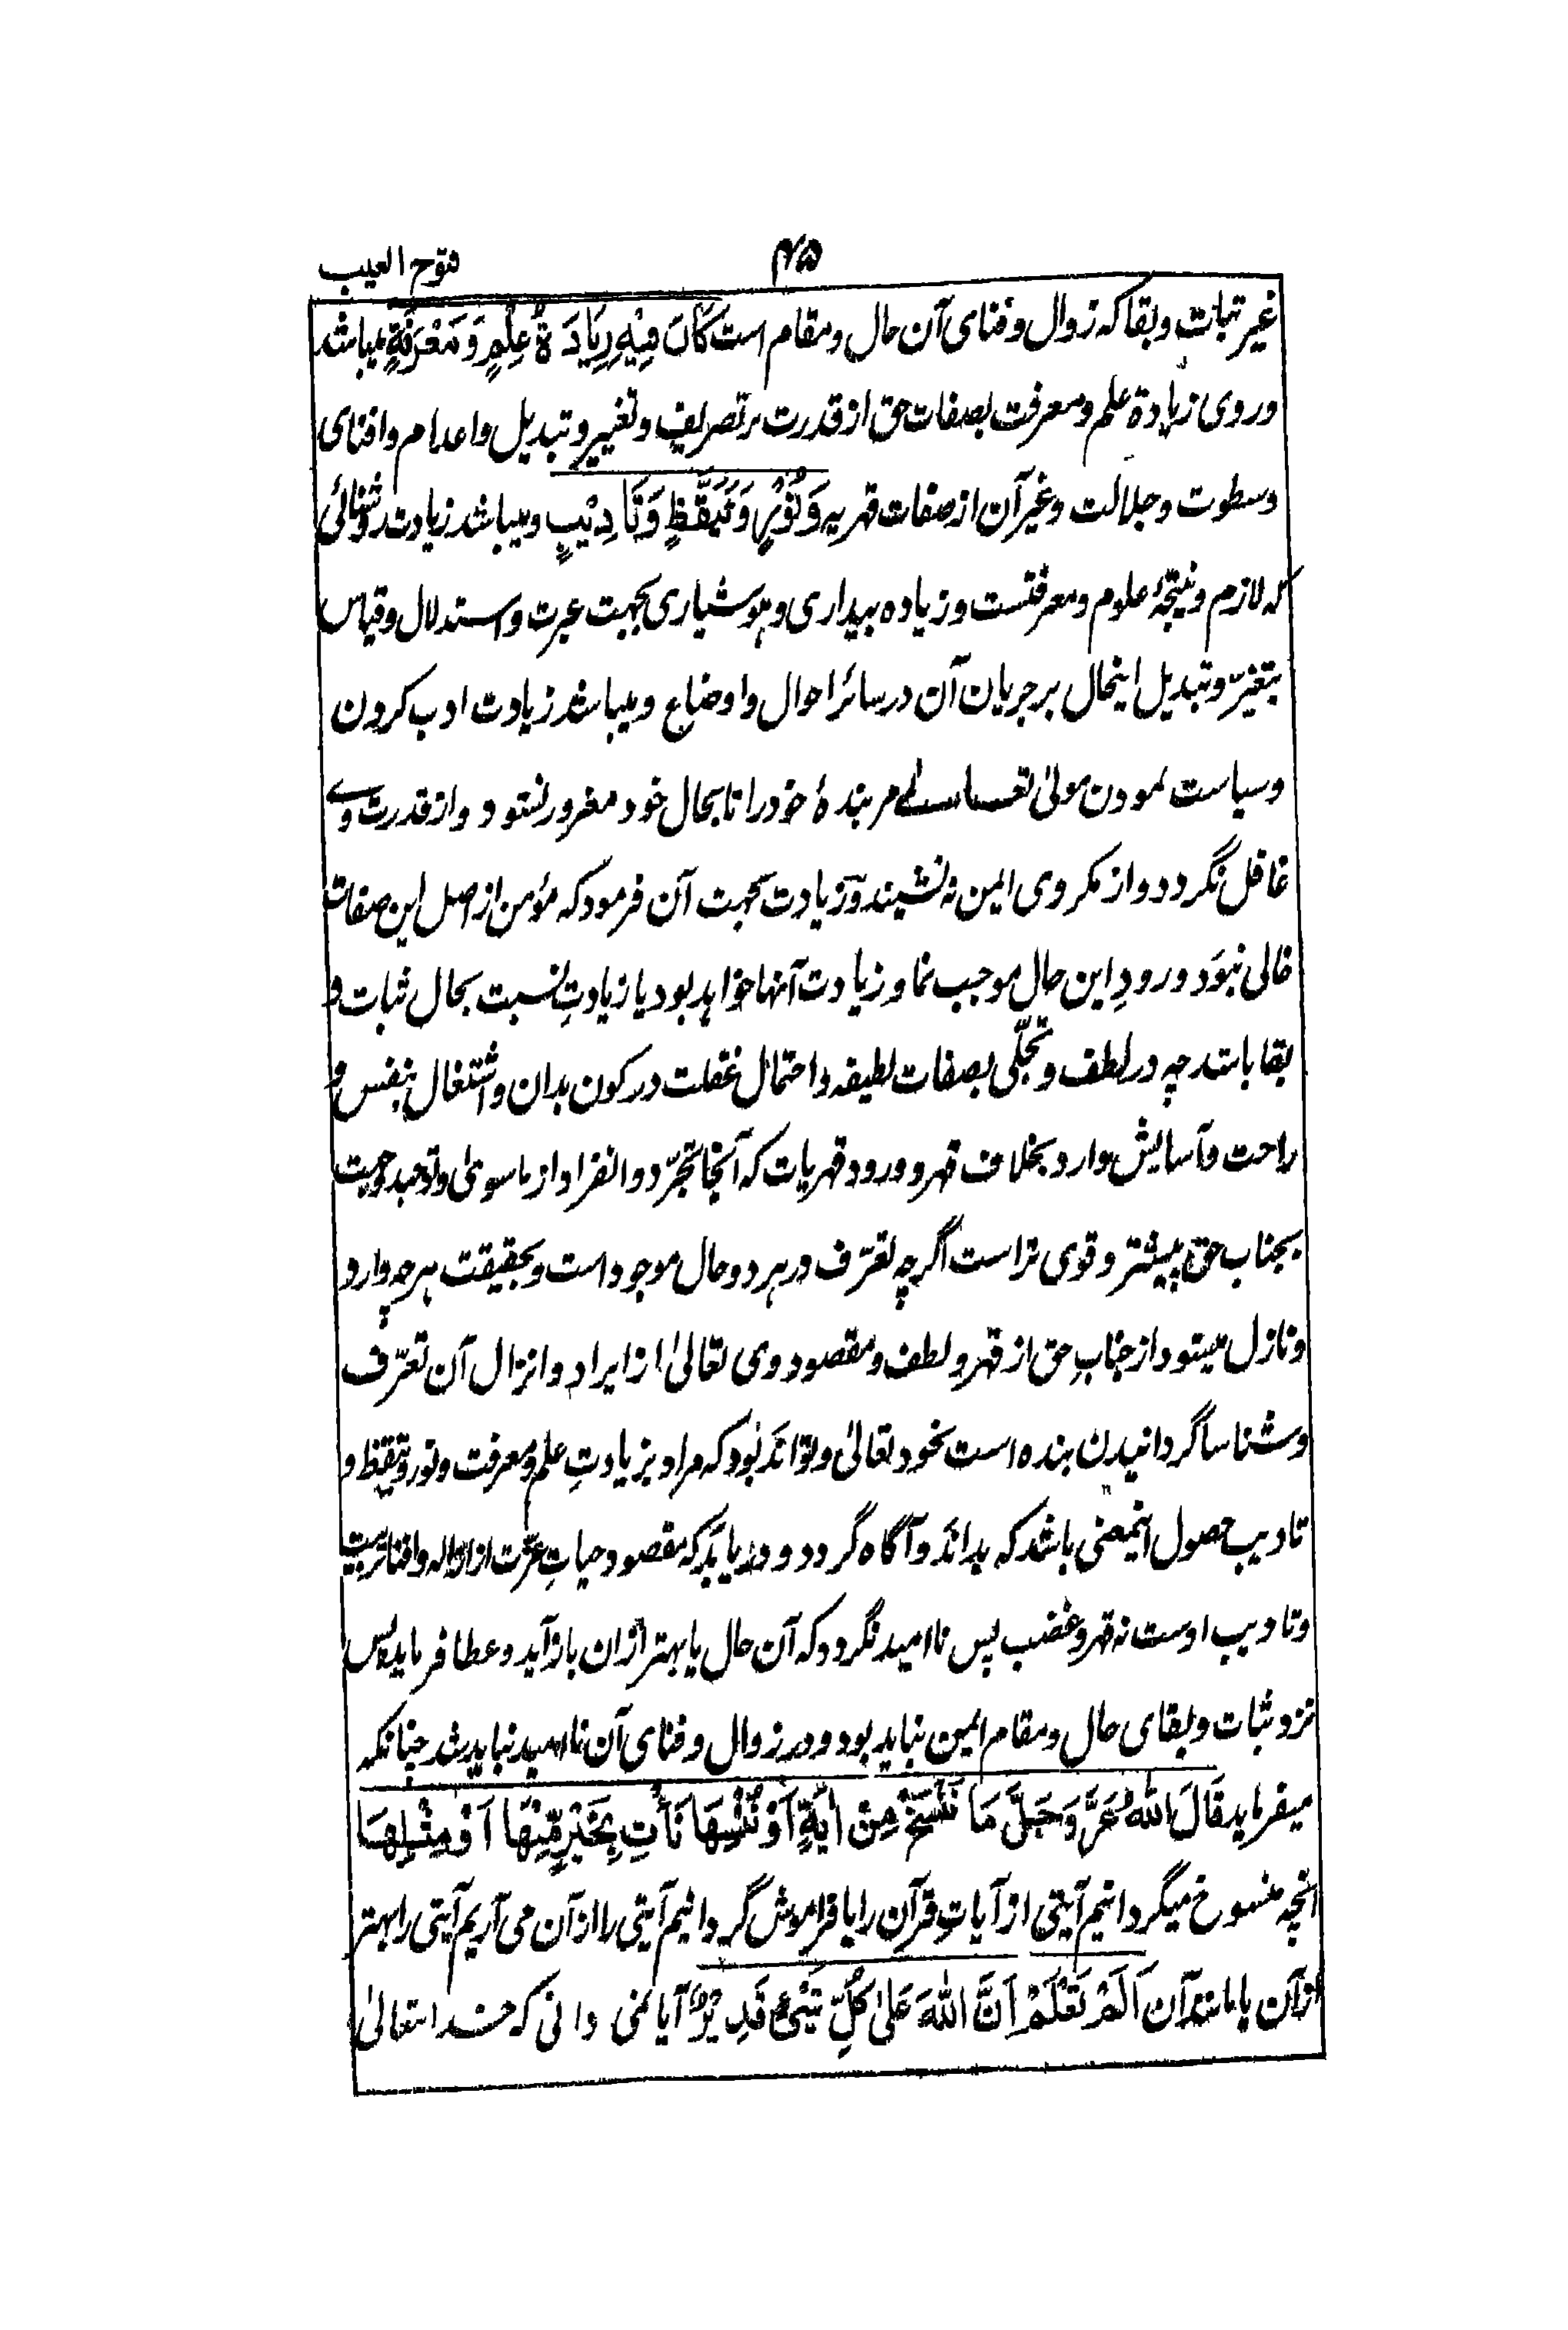 فتوح الغیب
۴۵
غیر ثبات و بقا که زوال و فنای آن حال و مقام است کَانَ فِیْهِ زِیَادَةُ عِلْمٍ وَ مَعْرِفَةٍ میباشد
در وی زیادة علم و معرفت بصفات حق از قدرت بر تصریف و تغییر و تبدیل و اعدام و افنای
و سطوت و جلالت و غیر آن از صفات قهریه وَ نُوْرٍ وَ تَیَقُّظٍ وَ تَادِیْبٍ و میباشد زیادت روشنائی
که لازم و نتیجهٔ علوم و معرفتست و زیاده بیداری و هوشیاری بجهت عبرت و استدلال و قیاس
بتغیّر و تبدیل اینحال بر جریان آن در سائر احوال و اوضاع و میباشد زیادت ادب کردن
و سیاست نمودن مولیٰ تعالے مر بندهٔ خود را تا بحال خود مغرور نشود و از قدرت وے
غافل نگردد و از مکر وی ایمن نه نشیند و زیادت بجهت آن فرمود که مؤمن از اصل این صفات
خالی نبوَد و ورودِ این حال موجب نما و زیادت آنها خواهد بود یا زیادتِ نسبت بحال ثبات و
بقا باشد چه در لطف و تجلّی بصفات لطیفه و احتمال غفلت در کون بدان و اشتغال بنفس و
راحت و آسایش وارد بخلاف قهر و ورود قهریات که آنجا تجرّد و انفراد از ماسویٰ و توحید وجهیت
بجناب حق بیشتر و قوی تر است اگرچه تعرّف در هر دو حال موجود است و بحقیقت هر چه وارد
و نازل میشود از جنابِ حق از قهر و لطف و مقصود وی تعالیٰ از ایراد و انزال آن تعرّف
و شناسا گردانیدن بنده است بخود تعالیٰ و تواند بود که مراد بزیادتِ علم و معرفت و نور و تیقظ و
تادیب حصول اینمعنی باشد که بداند و آگاه گردد و دریابد که مقصود حیاتِ عزّت از ازاله و افنا تربیت
و تادیب اوست نه قهر و غضب پس ناامید نگردد که آن حال یا بهتر ازان باز آید و عطا فرماید پس
نزد ثبات و بقای حال و مقام ایمن نباید بود و در زوال و فنای آن ناامید نباید شد چنانکه
میفرماید قَالَ اللّٰهُ عَزَّ وَ جَلَّ مَا نَنْسَخْ مِنْ اٰیَةٍ اَوْ نُنْسِهَا نَأْتِ بِخَیْرٍ مِّنْهَا اَوْ مِثْلِهَا
انچه منسوخ میگردانیم آیتی از آیاتِ قرآن را یا فراموش گردانیم آیتی را از آن می آریم آیتی را بهتر
از آن یا مانند آن اَلَمْ تَعْلَمْ اَنَّ اللّٰهَ عَلیٰ کُلِّ شَیْءٍ قَدِیْرٌ آیا نمی دانی که خدا تعالیٰ